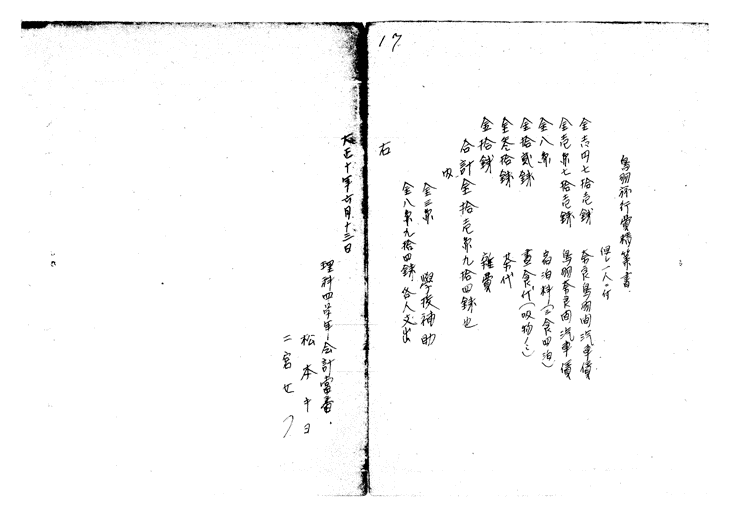 17
鳥羽旅行費精算書
但シ一人ニ付
金壱円七拾壱銭 奈良鳥羽間汽車賃
金壱円七拾壱銭 鳥羽奈良間汽車賃
金八円 宿泊料(二食四泊)
金拾弐銭 昼食代(吸物
金参拾銭 茶代
金拾銭 雑費
合計金拾壱円九拾四銭也
内
金三円 学校補助
金八円九拾四銭 各人支出
右
大正十年六月十三日
理科四学年会計当番
松本キヨ
二宮セツ